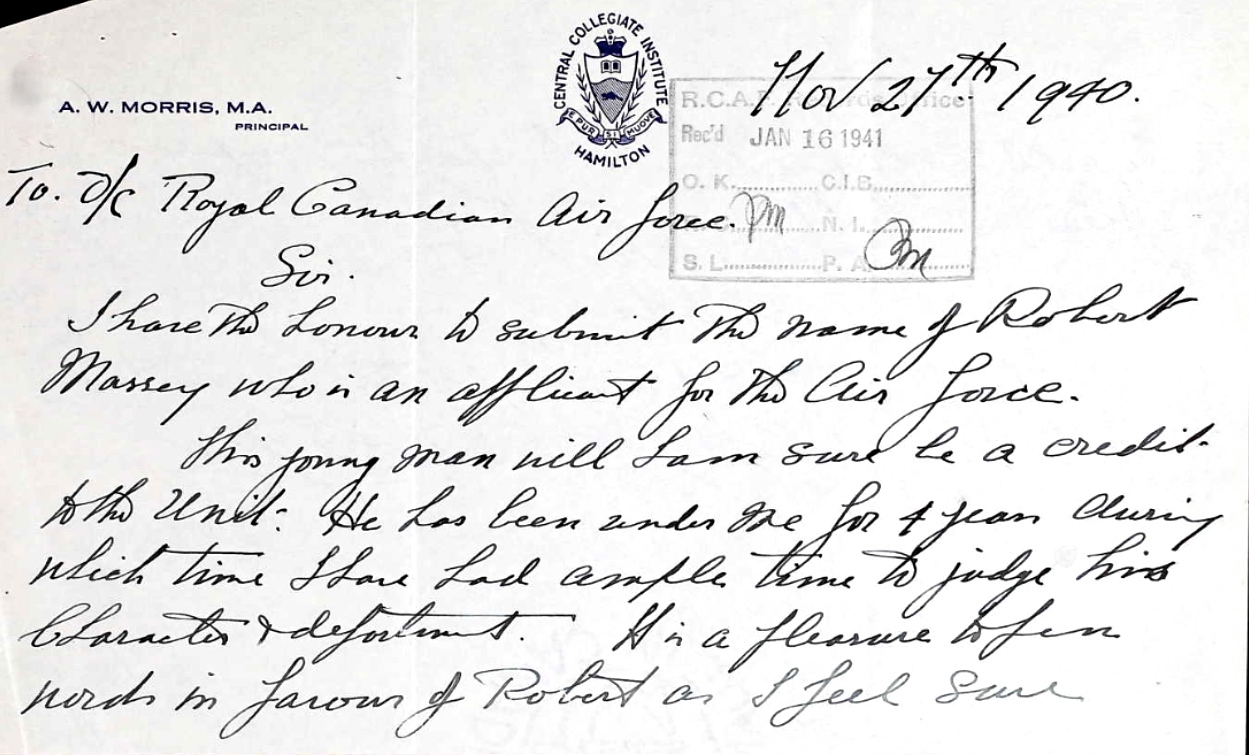 CENTRAL COLLEGIATE INSTITUTE
E PUR SI MUOVE
HAMILTON
A. W. MORRIS, M.A.
PRINCIPAL
Nov 27th 1940.
R.C.A.F. Records Office
Rec'd JAN 16 1941
O. K. C.I.B.
N. I.
S. L. P. A.
To. O/C Royal Canadian Air Force.
Sir.
I have the honour to submit the name of Robert
Massey who is an applicant for the Air Force.
This young man will I am sure be a credit
to the Unit. He has been under me for 4 years during
which time I have had ample time to judge his
Character & deportment. It is a pleasure to pen
words in favour of Robert as I feel sure